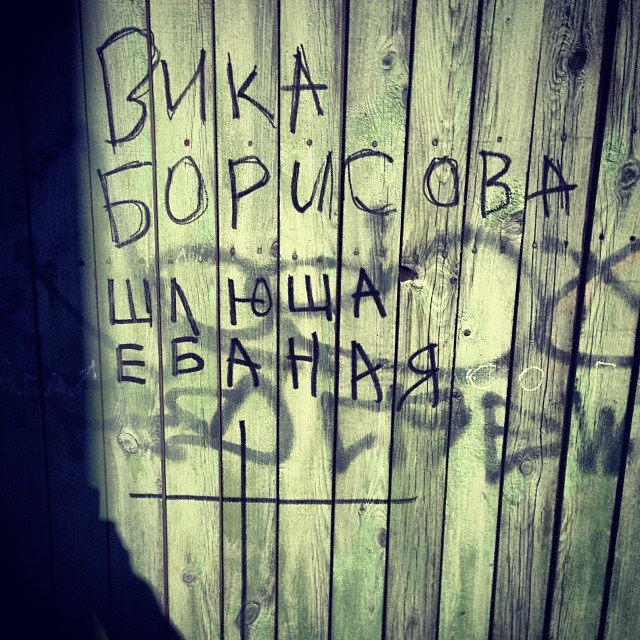 ВИКА
БОРИСОВА
ШЛЮША
ЕБАНАЯ